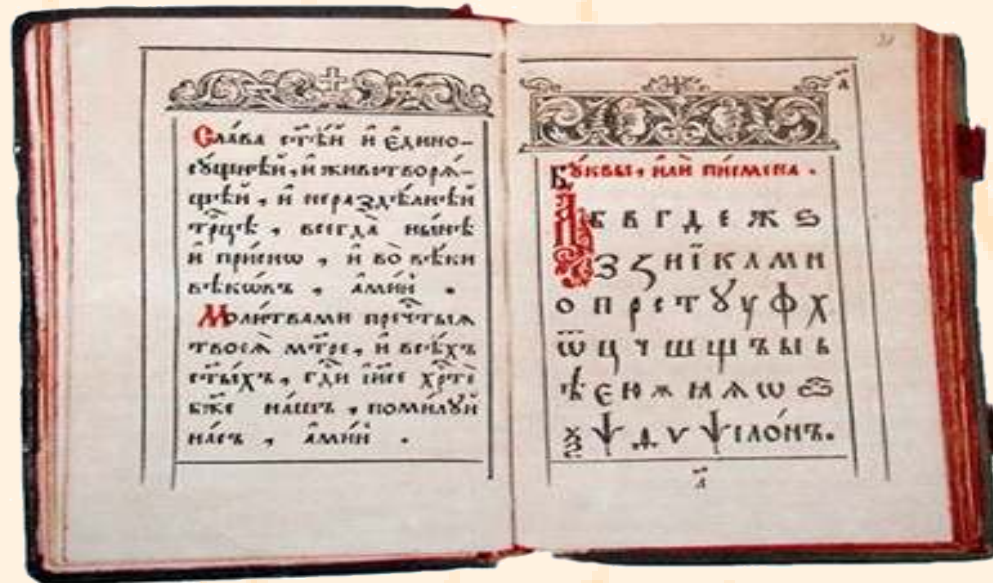 Сла́ва ст҃ѣ́й и҆ є҆дино-
сꙋ́щнѣй, и҆ животворѧ́-
щей, и҆ нераздѣ́лнѣй
трⷪ҇цѣ, всегда̀ ны́нѣ
и҆ при́снѡ, и҆ во̀ вѣ́ки
вѣкѡ́въ, а҆ми́нь.
Моли́твами пречⷭ҇тыѧ
твоеѧ̀ мт҃ре, и҆ всѣ́хъ
ст҃ы́хъ, гдⷭ҇и і҆и҃се хрⷭ҇тѐ
бж҃е на́шъ, поми́лꙋй
на́съ, а҆ми́нь.
21
а҃
Бꙋ́квы, и҆лѝ пи́смена.
А б в г д е ж ѕ
З з ҁ и ї к л м н
о п р с т ꙋ у ф х
ѿ ц ч ш щ ъ ы ь
ѣ є ю ѫ ꙗ ѧ ѡ
ѯ ѱ ѵ ѱїло́нъ.